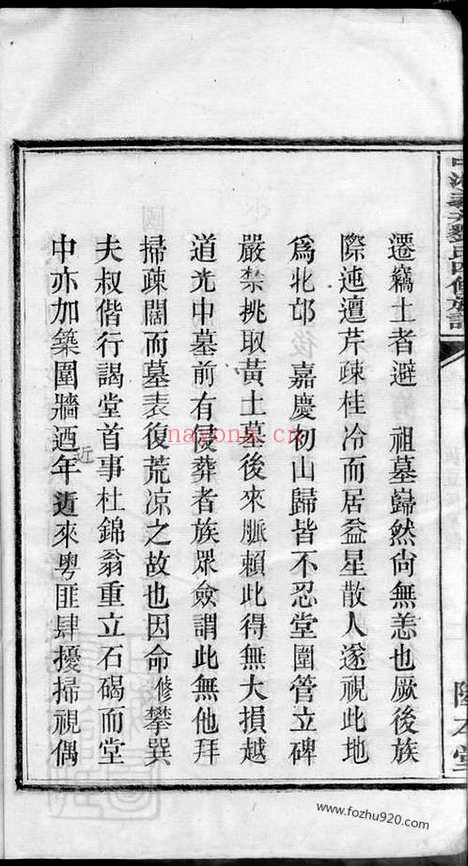 遷竊土者避　祖墓巋然尙無恙也厥後族
際迍邅芹疎桂冷而居益星散人遂視此地
爲北邙　嘉慶初山歸皆不忍堂圍管立碑
嚴禁挑取黃土墓後來脈賴此得無大損越
道光中墓前有侵葬者族眾僉謂此無他拜
掃疎闊而墓表復荒凉之故也因命修攀巽
夫叔偕行謁堂首事杜錦翁重立石碣而堂
中亦加築圍牆迺年近來粵匪肆擾掃視偶
近
nayona.cn
www.fozhu920.com